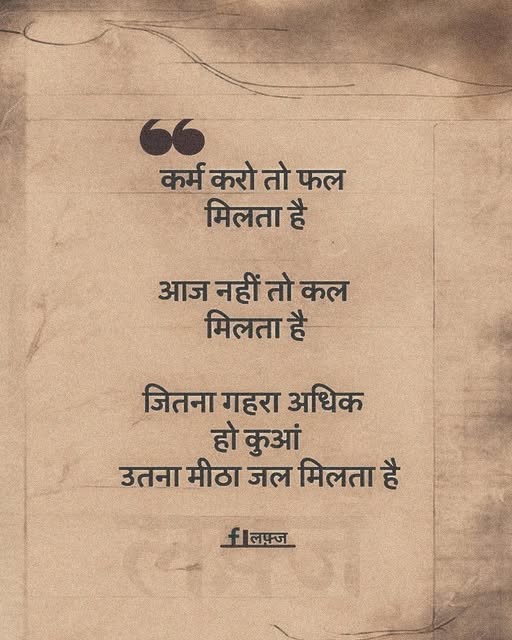 ❝
कर्म करो तो फल
मिलता है
आज नहीं तो कल
मिलता है
जितना गहरा अधिक
हो कुआं
उतना मीठा जल मिलता है
f|लफ़्ज
लफ़्ज